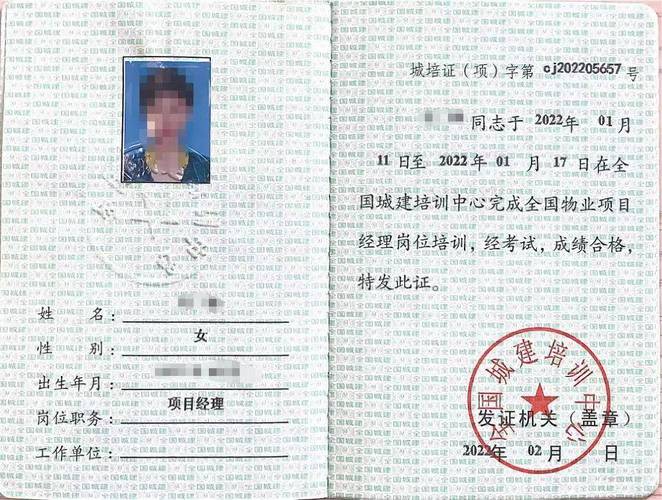 姓 名：
性 别： 女
出生年月：
岗位职务： 项目经理
工作单位：
城培证（项）字第 cj202205657 号
同志于 2022年 01 月
11 日至 2022 年 01 月 17 日在全
国城建培训中心完成全国物业项目
经理岗位培训，经考试，成绩合格，
特发此证。
全国城建培训中心
发证机关（盖章）
2022年 02 月 日